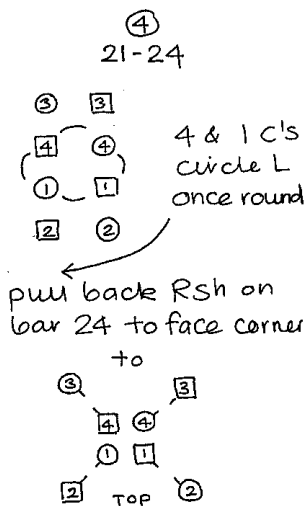 ④
21-24
③ 3
4 ④
① 1
2 ②
4 & 1 C's
circle L
once round
pull back Rsh on
bar 24 to face corner
to
③ 3
4 ④
① 1
2 ②
TOP